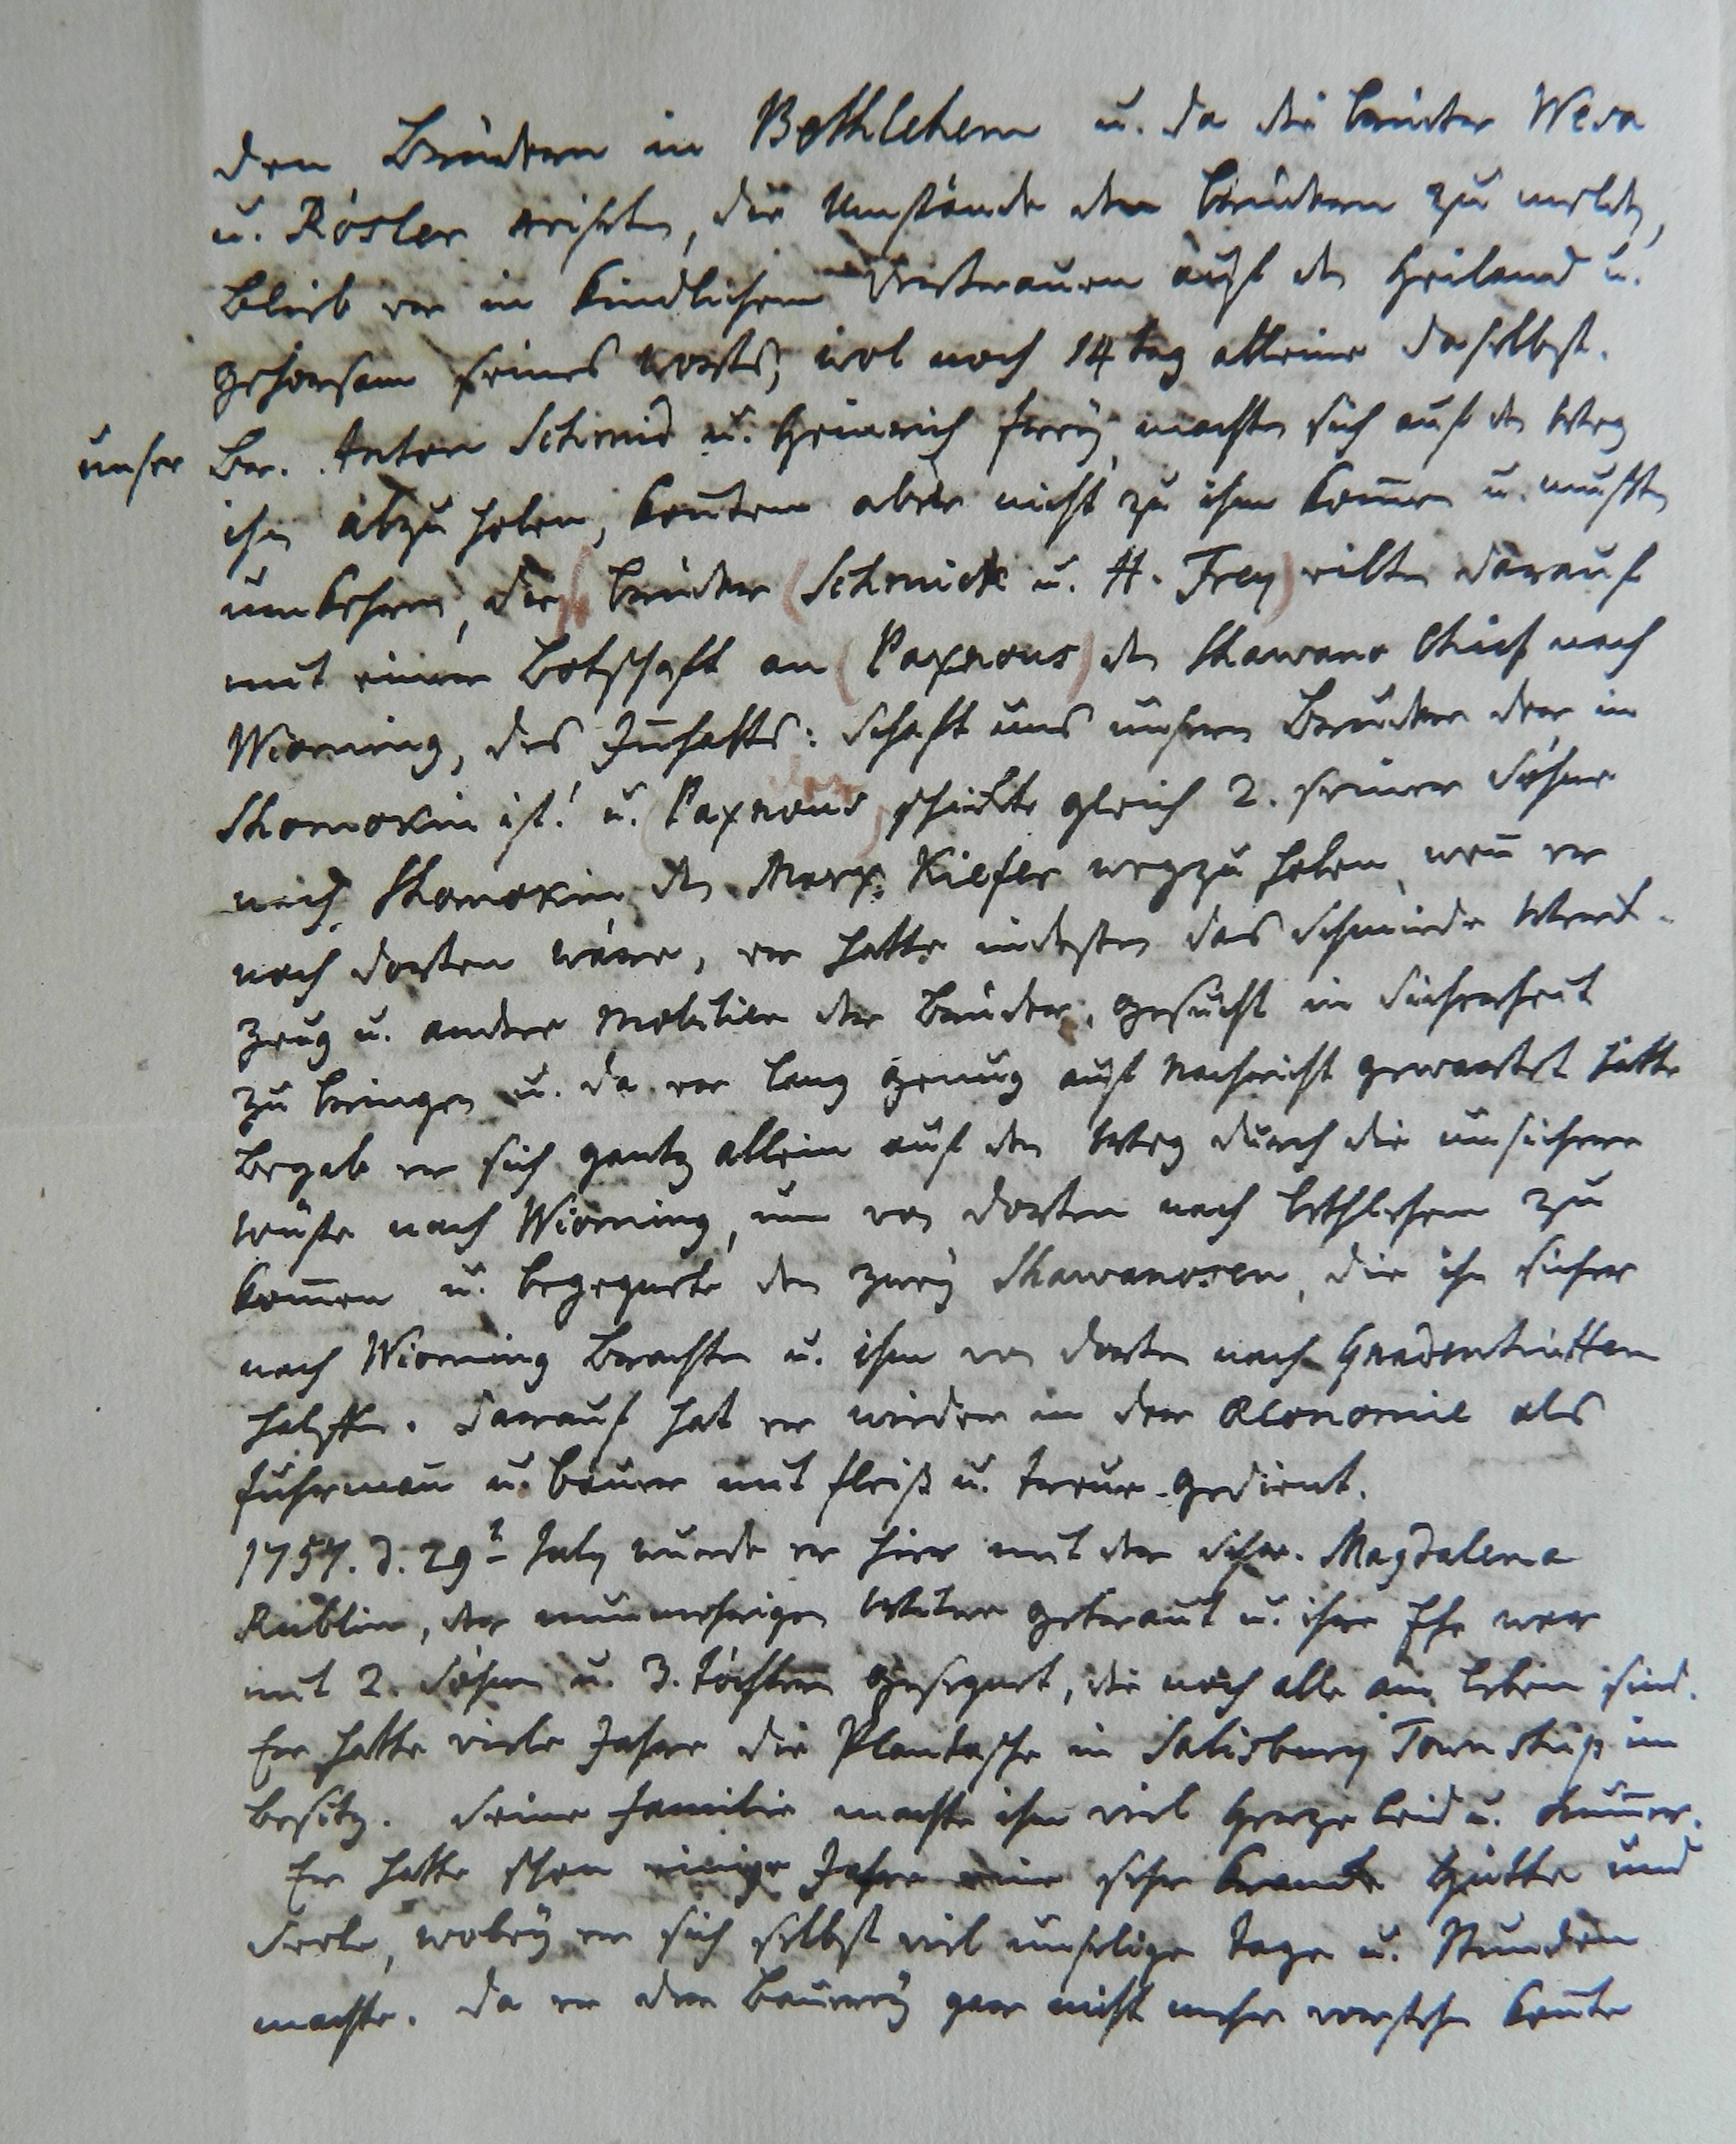 den Brüdern in Bethlehem u. da die brüder Wesa
u. Rösler reißten, die Umstände den brüdern zu meldⁿ,
blieb er in kindlichem Vertrauen auf dⁿ Heiland u.
gehorsam seines worts, wol noch 14 tag alleine daselbst.
unser Br. Anton Schmid u. Heinrich frey machtⁿ sich auf dⁿ Weg
ihn abzu holen, kon̄ten aber nicht zu ihm kom̄en u. mußtⁿ
umkehren, die brüder (Schmidt u. H. Frey) eiltⁿ darauf
mit einer Botschaft an (Paxnous) dⁿ Shawano Chief nach
Wioming, des In̄halts: Schaft uns unsern Bruder der in
Shomokin ist! u. (Paxnous) schickte gleich 2. seiner Söhne
nach Shomokin dⁿ Marx Kiefer wegzu holen, wen̄ er
noch dorten wäre, er hatte indeßen das Schmiede Werk-
zeug u. andere Mobilien der Brüder, gesucht in Sicherheit
zu bringen u. da er lang genug auf Nachricht gewartet hatte
begab er sich gantz allein auf den Weg durch die unsichere
wüste nach Wioming, um von dorten nach bethlehem zu
kom̄en u. begegnete den zwey Shawanosen, die ihn sicher
nach Wioming brachten u. ihm von dorten nach Gnadenhütten
halffen. Darauf hat er wieder in der Œconomie als
fuhrman̄ u. bauer mit fleiß u. treue gedient.
1757. d. 29ᵗ July wurde er hier mit der Schw. Magdalena
Rublin, der nunmehrigen Witwe getraut u. ihre Ehe war
mit 2. Söhnen u. 3. töchtern gesegnet, die noch alle am Leben sind.
Er hatte viele Jahre die Plantasche in Salisbury Township im
besitz. Seine familie machte ihm viel Herzeleid u. Kum̄er.
Er hatte schon einige Jahre eine sehr kranke Hütte und
Seele, wobey er sich selbst viel unselige tage u. Stunden
machte. Da er der Bauerey gar nicht mehr vorstehn kon̄te